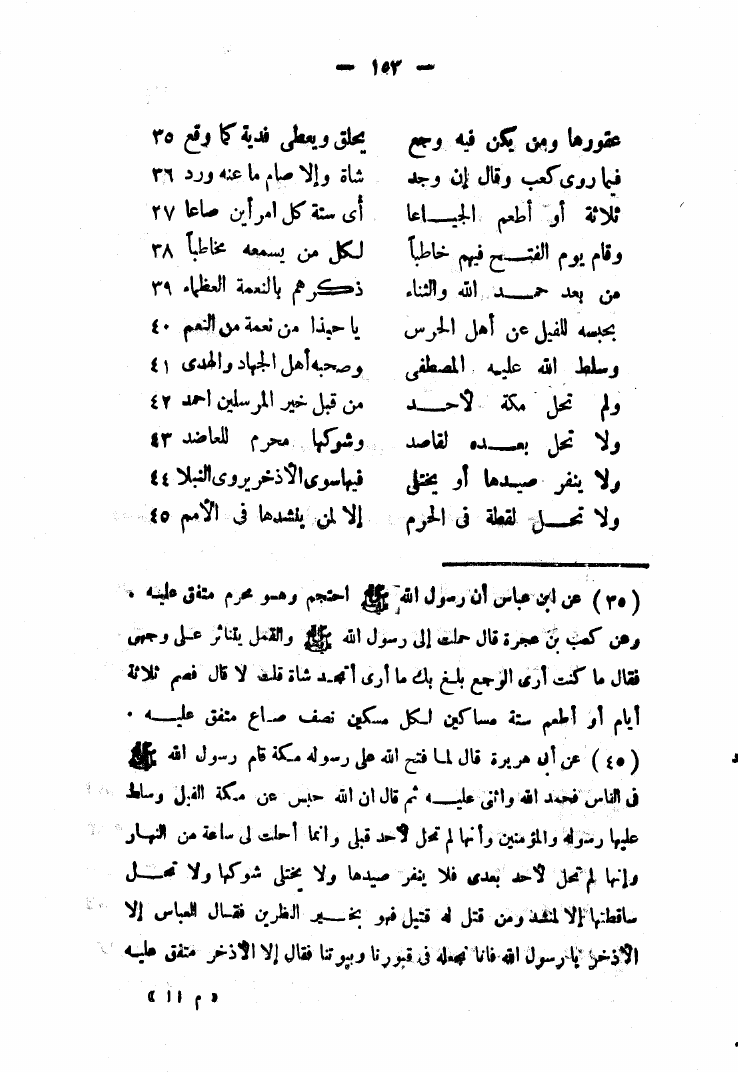 — ١٥٣ —
عقورها ومن يكن فيه وجع يحلق ويعطى فدية كما وقع ٣٥
فيما روى كعب وقال إن وجد شاة وإلا صام ما عنه ورد ٣٦
ثلاثة أو أطعم الجياعا أى ستة كل امرأين صاعا ٢٧
وقام يوم الفتح فيهم خاطباً لكل من يسمعه مخاطباً ٣٨
من بعد حمد الله والثناء ذكرهم بالنعمة العظماء ٣٩
بحبسه للفيل عن أهل الحرس يا حبذا من نعمة من النعم ٤٠
وسلط الله عليه المصطفى وصحبه أهل الجهاد والهدى ٤١
ولم تحل مكة لأحد من قبل خير المرسلين احمد ٤٢
ولا تحل بعده لقاصد وشوكها محرم للعاضد ٤٣
ولا ينفر صيدها أو يختلى فيها سوى الأذخر يروى النبلا ٤٤
ولا تحل لقطة فى الحرم إلا لمن ينشدها فى الأمم ٤٥
(٣٥) عن ابن عباس أن رسول الله ﷺ احتجم وهو محرم متفق عليه .
وعن كعب بن عجرة قال حملت إلى رسول الله ﷺ والقمل يتناثر على وجهى
فقال ما كنت أرى الوجع بلغ بك ما أرى أتجد شاة قلت لا قال فصم ثلاثة
أيام أو أطعم ستة مساكين لكل مسكين نصف صاع متفق عليه .
(٤٥) عن أبى هريرة قال لما فتح الله على رسوله مكة قام رسول الله ﷺ
فى الناس فحمد الله واثنى عليه ثم قال ان الله حبس عن مكة الفيل وسلط
عليها رسوله والمؤمنين وأنها لم تحل لأحد قبلى وانما أحلت لى ساعة من النهار
وإنها لم تحل لأحد بعدى فلا ينفر صيدها ولا يختلى شوكها ولا تحل
ساقطتها إلا لمنشد ومن قتل له قتيل فهو بخير النظرين فقال العباس إلا
الأذخر يا رسول الله فانا نجعله فى قبورنا وبيوتنا فقال إلا الأذخر متفق عليه
« م ١١ »